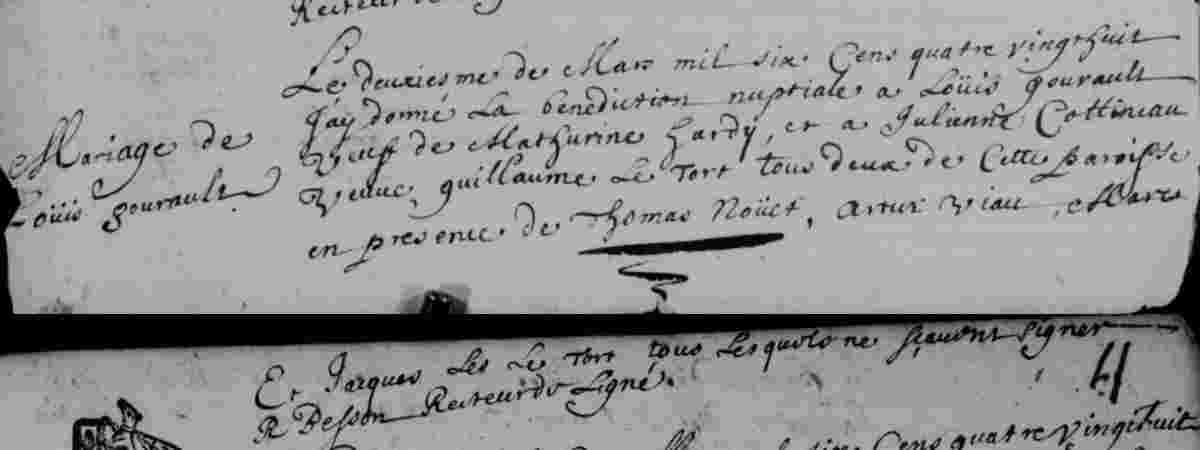 Recteur de
Le deuxiesme de Mars mil six Cens quatre vingthuit
J'ay donné La benediction nuptiale a Loüis gourault
Mariage de
Veuff de Mathurine hardy, et a Julienne Cottineau
Loüis gourault
Veuve, guillaume Le Tort tous deux de Cette paroisse
en presence de Thomas Noüet, Artur Viau, Marc
Et Jacques Les Le Tort tous Lesquels ne sçavent signer
4
R Besson Recteur de Ligné.
six Cens quatre vingthuit